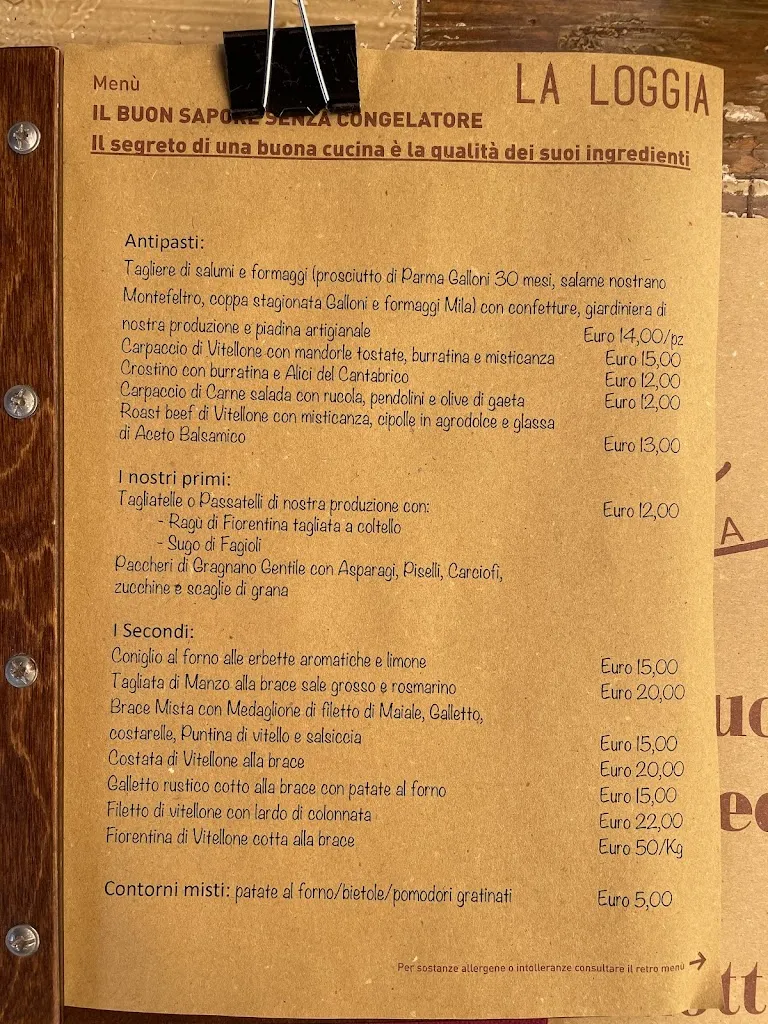 Menù
LA LOGGIA
IL BUON SAPORE SENZA CONGELATORE
Il segreto di una buona cucina è la qualità dei suoi ingredienti
Antipasti:
Tagliere di salumi e formaggi (prosciutto di Parma Galloni 30 mesi, salame nostrano
Montefeltro, coppa stagionata Galloni e formaggi Mila) con confetture, giardiniera di
nostra produzione e piadina artigianale Euro 14,00/pz
Carpaccio di Vitellone con mandorle tostate, burratina e misticanza Euro 15,00
Crostino con burratina e Alici del Cantabrico Euro 12,00
Carpaccio di Carne salada con rucola, pendolini e olive di gaeta Euro 12,00
Roast beef di Vitellone con misticanza, cipolle in agrodolce e glassa
di Aceto Balsamico Euro 13,00
I nostri primi:
Tagliatelle o Passatelli di nostra produzione con: Euro 12,00
- Ragù di Fiorentina tagliata a coltello
- Sugo di Fagioli
Paccheri di Gragnano Gentile con Asparagi, Piselli, Carciofi,
zucchine e scaglie di grana
I Secondi:
Coniglio al forno alle erbette aromatiche e limone Euro 15,00
Tagliata di Manzo alla brace sale grosso e rosmarino Euro 20,00
Brace Mista con Medaglione di filetto di Maiale, Galletto,
costarelle, Puntina di vitello e salsiccia Euro 15,00
Costata di Vitellone alla brace Euro 20,00
Galletto rustico cotto alla brace con patate al forno Euro 15,00
Filetto di vitellone con lardo di colonnata Euro 22,00
Fiorentina di Vitellone cotta alla brace Euro 50/Kg
Contorni misti: patate al forno/bietole/pomodori gratinati Euro 5,00
Per sostanze allergene o intolleranze consultare il retro menù →